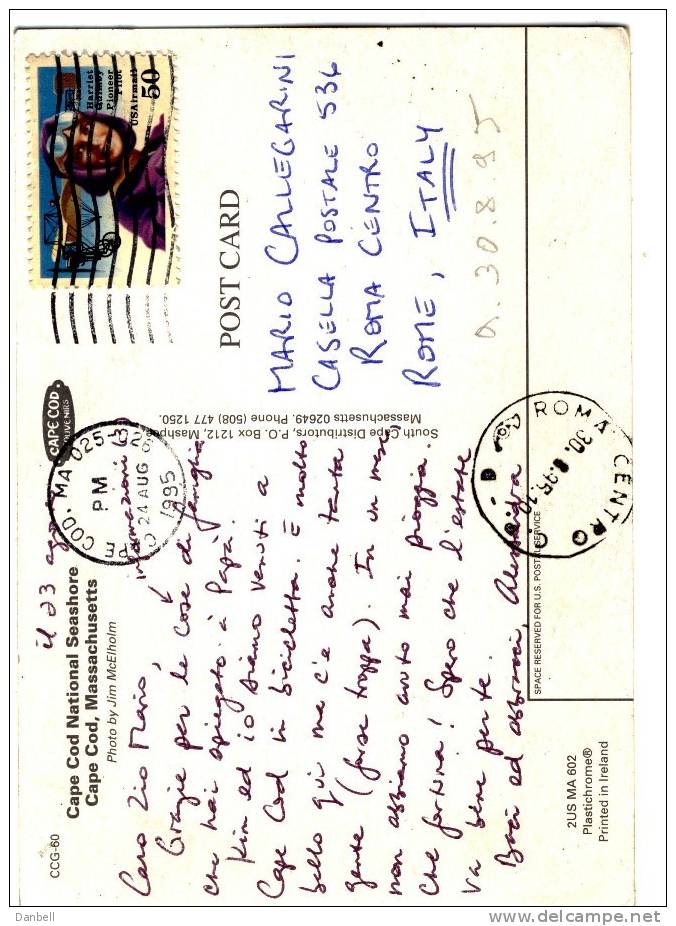 CCG-60
Cape Cod National Seashore
Cape Cod, Massachusetts
Photo by Jim McElholm
il 23
Caro Zio Mario,
informazioni
Grazie per le cose di famiglia
che hai spiegato a Papà.
Kim ed io siamo venuti a
Cape Cod in bicicletta. È molto
bello qui ma c'è anche tanta
gente (forse troppa). In un mese,
non abbiamo avuto mai pioggia.
che fortuna! Spero che l'estate
va bene per te.
Baci ed abbracci, Alessandra
CAPE COD
SOUVENIRS
South Cape Distributors, P.O. Box 1212, Mashpee,
Massachusetts 02649, Phone (508) 477 1250.
POST CARD
Harriet
Quimby
Pioneer
Pilot
USAirmail
50
CAPE COD, MA 025-026
PM
24 AUG
1995
MARIO CALLEGARINI
CASELLA POSTALE 536
ROMA CENTRO
ROME, ITALY
a. 30.8.95
ROMA CENTRO
30.8.95.10
SPACE RESERVED FOR U.S. POSTAL SERVICE
2US MA 602
Plastichrome®
Printed in Ireland
Danbell
www.delcampe.net